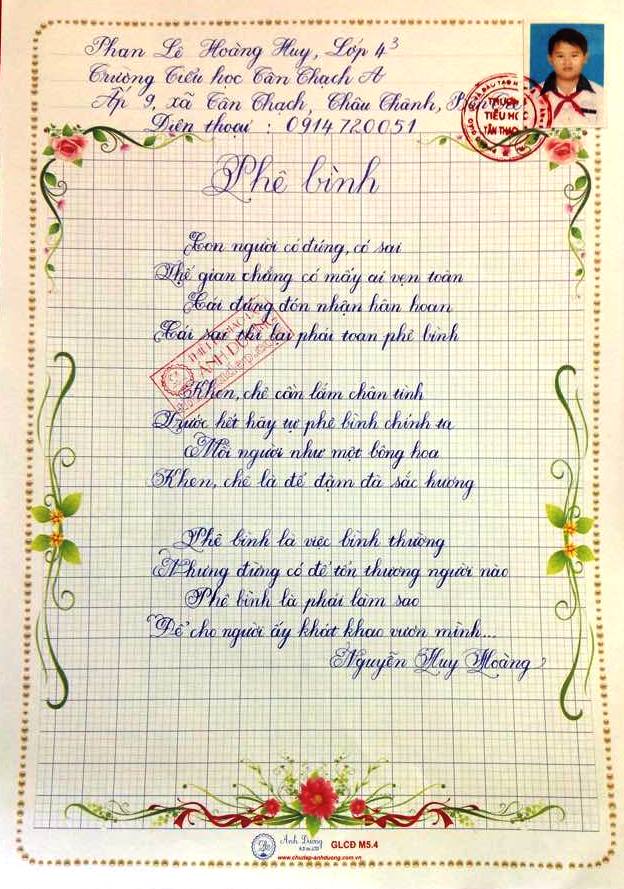 Phan Lê Hoàng Huy, Lớp 4³
Trường Tiểu học Tân Thạch A
Ấp 9, xã Tân Thạch, Châu Thành,
Điện thoại : 0914720051
TRƯỜNG
TIỂU HỌC
TÂN THẠCH
Phê bình
Con người có đúng, có sai
Thế gian chẳng có mấy ai vẹn toàn
Cái đúng đón nhận hân hoan
Cái sai thì lại phải toan phê bình
ÁNH DƯƠNG
Khen, chê cần lắm chân tình
Trước hết hãy tự phê bình chính ta
Mỗi người như một bông hoa
Khen, chê là để đậm đà sắc hương
Phê bình là việc bình thường
Nhưng đừng có để tổn thương người nào
Phê bình là phải làm sao
Để cho người ấy khát khao vươn mình...
Nguyễn Huy Hoàng
Ánh Dương
GLCD M5.4
www.chudep-anhduong.com.vn